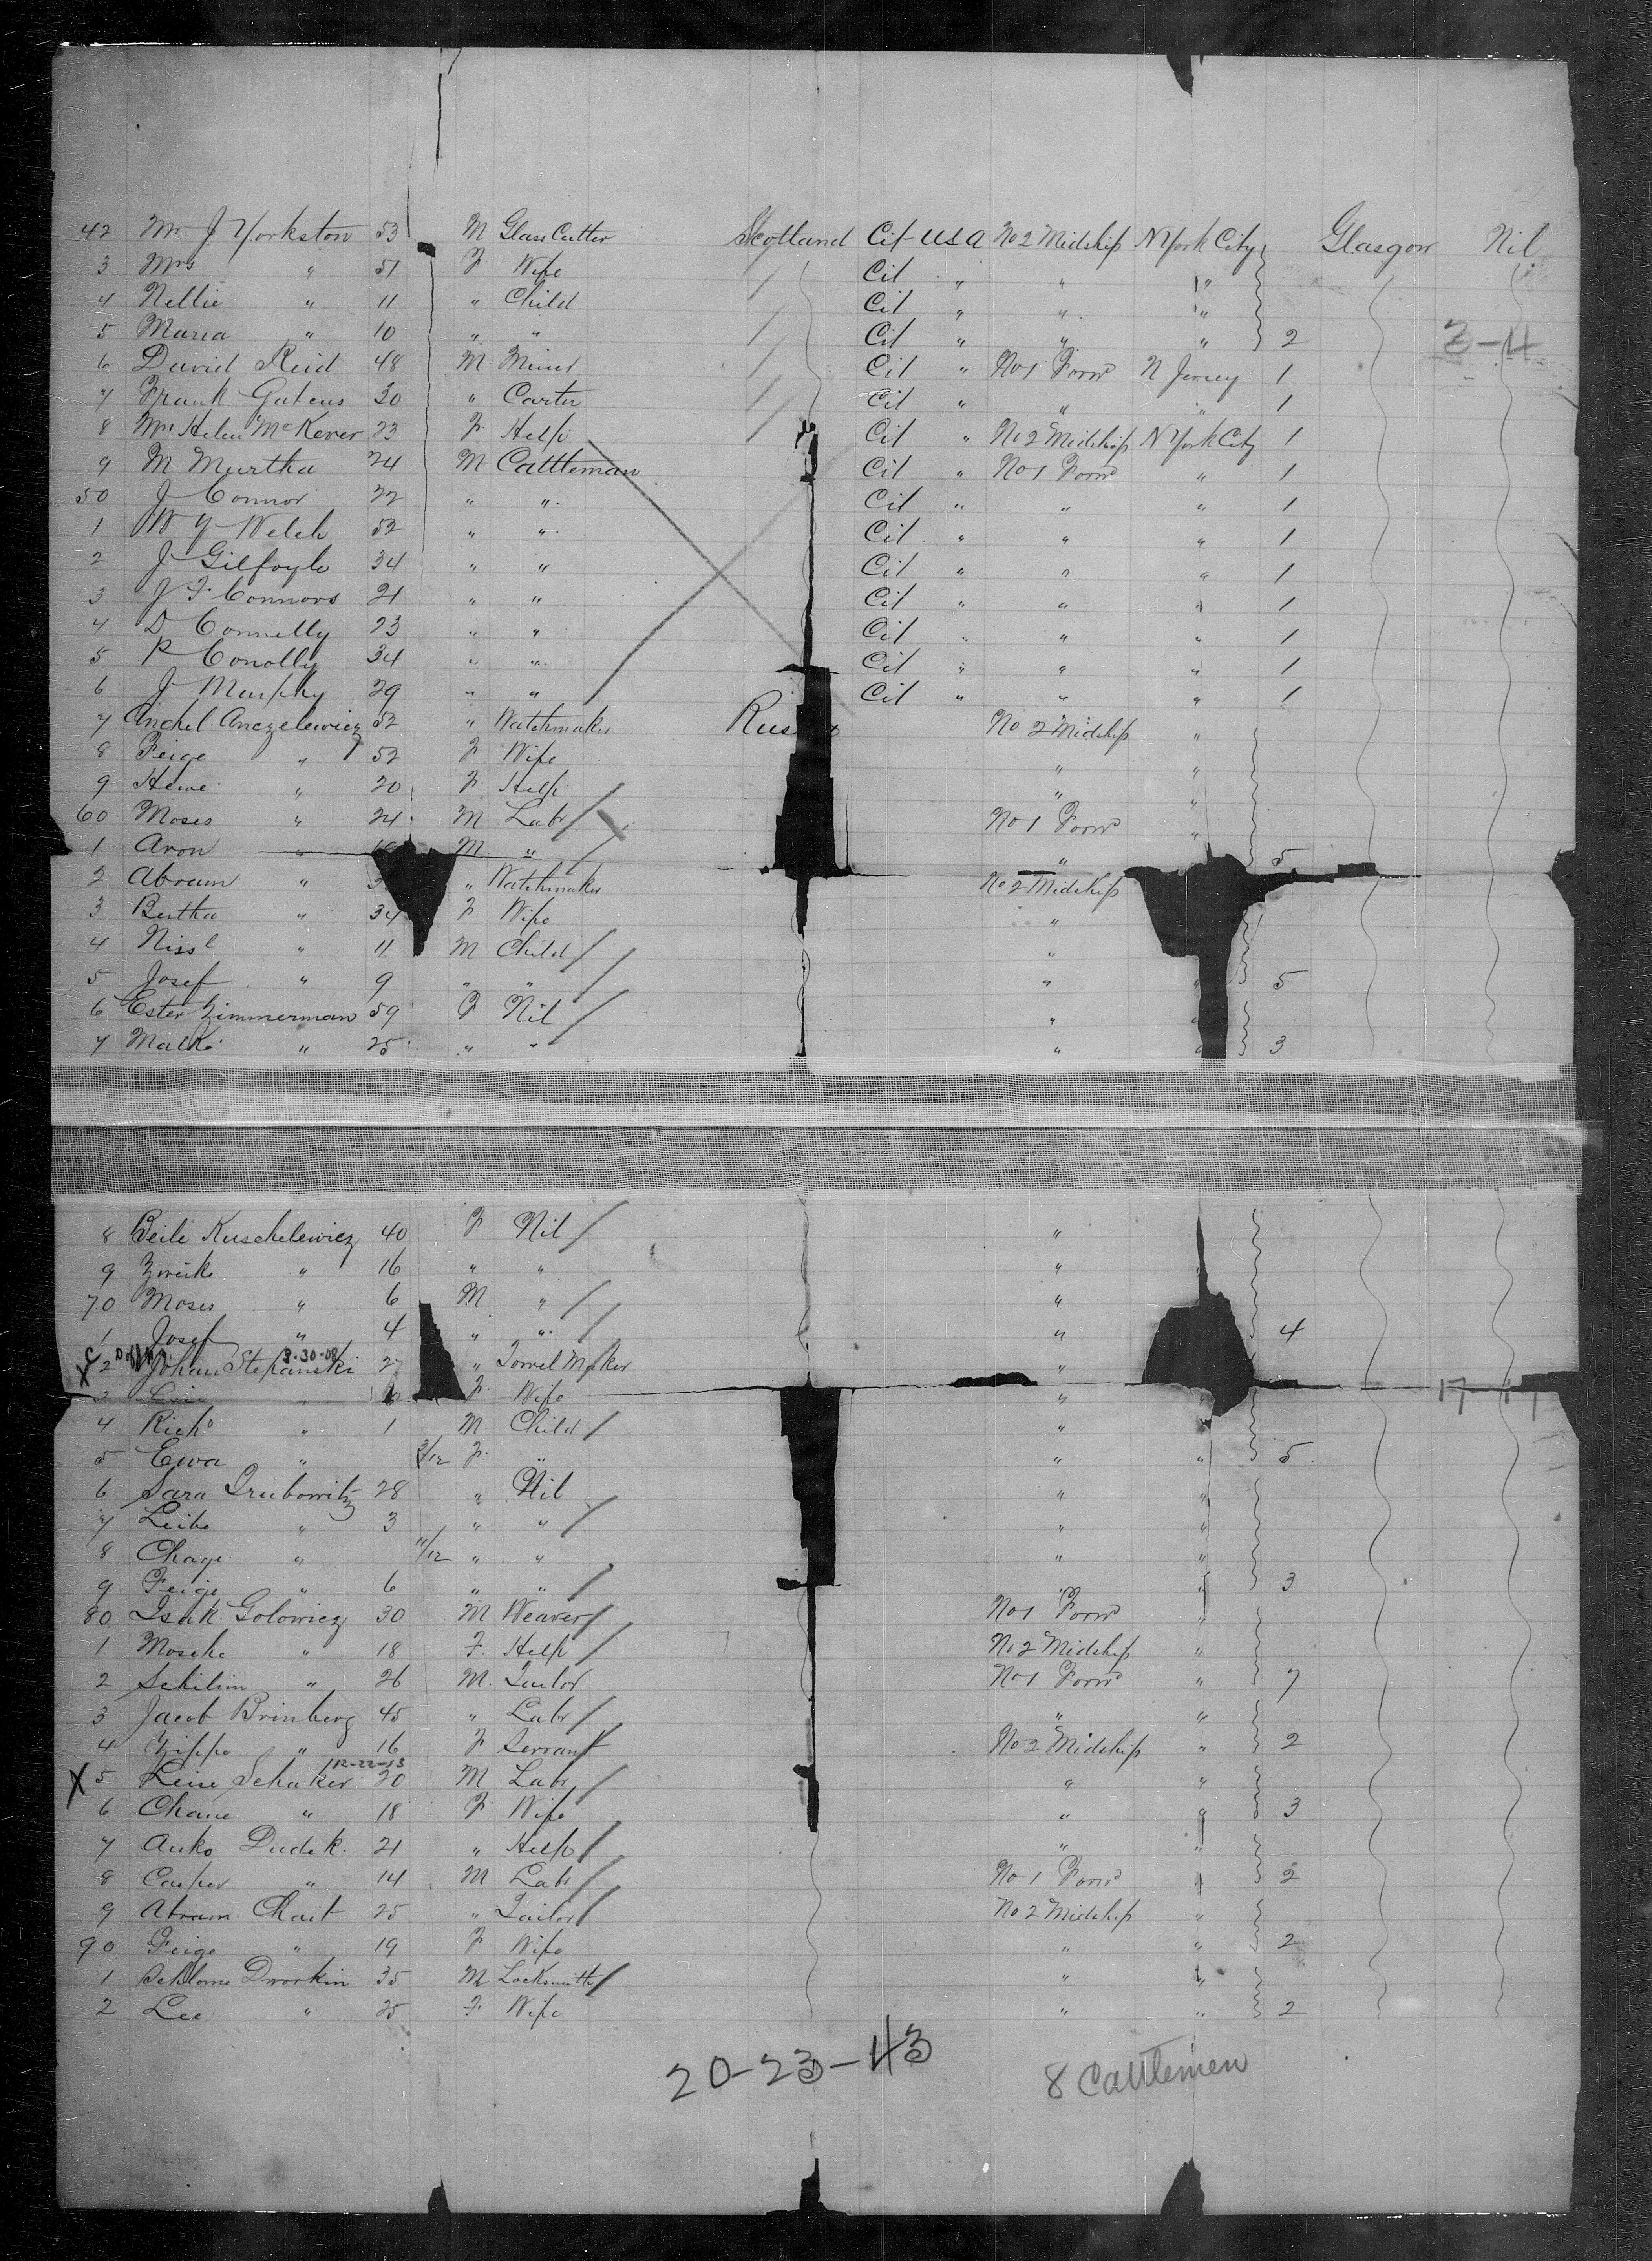 42 Mr J Yorkston 53 M Glass Cutter Scotland Cit USA No 2 Midship N York City Glasgow Nil
3 Mrs " 51 F Wife / Cit " " "
4 Nellie " 11 " Child Cit " " "
5 Maria " 10 " " / Cit " " " 2 3-4
6 David Reid 48 M Miner / Cit " No 1 Forw N Jersey 1
7 Frank Gateus 30 " Carter / Cit " " " 1
8 Mrs Helen McKever 23 F Help / Cit " No 2 Midship N York City 1
9 M Murtha 24 M Cattleman Cit " No 1 Forw " 1
50 J Connor 22 " " Cit " " " 1
1 W Y Welch 52 " " Cit " " " 1
2 J Gilfoyle 34 " " Cit " " " 1
3 J F Connors 21 " " Cit " " " 1
4 D Connelly 23 " " Cit " " " 1
5 P Conolly 34 " " Cit " " " 1
6 J Murphy 29 " " Cit " " " 1
7 Anchel Anczelewicz 52 " Watchmaker Rus No 2 Midship "
8 Feige " 52 F Wife " "
9 Hewe " 20 F Help / " "
60 Moses " 24 M Labr / No 1 Forw "
1 Aron " M " " 5
2 Abram " " Watchmaker No 2 Midship
3 Bertha " 34 F Wife "
4 Nissl " 11 M Child / "
5 Josef " 9 " " / " " 5
6 Ester Zimmerman 59 F Nil / "
7 Malke " 25 " " " " 3
8 Beile Kuschelewicz 40 F Nil / "
9 " 16 " " "
70 Moses " 6 M " / "
1 Josef " 4 " " / " 4
X 2 Johan Stepanski 3-30-08 27 " Maker "
3 " F Wife " 17-17
4 " 1 M Child / "
5 Ewa " 3/12 F " " " 5
6 Sara Grubowitz 28 " Nil " "
7 Leibe " 3 " " / " "
8 Chage " 11/12 " " " "
9 Feige " 6 " " / " 3
80 Isak Golowicz 30 M Weaver / No 1 Forw "
1 Mosche " 18 F Help / No 2 Midship "
2 Schilim " 26 M Tailor No 1 Forw " 7
3 Jacob Brinberg 45 " Labr / " "
4 Zippe " 16 F Servant No 2 Midship " 2
X 5 Leise Schaker 12-22-13 20 M Labr / " "
6 Chane " 18 F Wife " " 3
7 Anko Dudek 21 " Help / " "
8 Casper " 14 M Labr / No 1 Forw " 2
9 Abram Chait 25 " Tailor / No 2 Midship "
90 Feige " 19 F Wife " " 2
1 Schlome Dworkin 35 M Locksmith / " "
2 Lee " 25 F Wife " " 2
20-23-43 8 Cattlemen